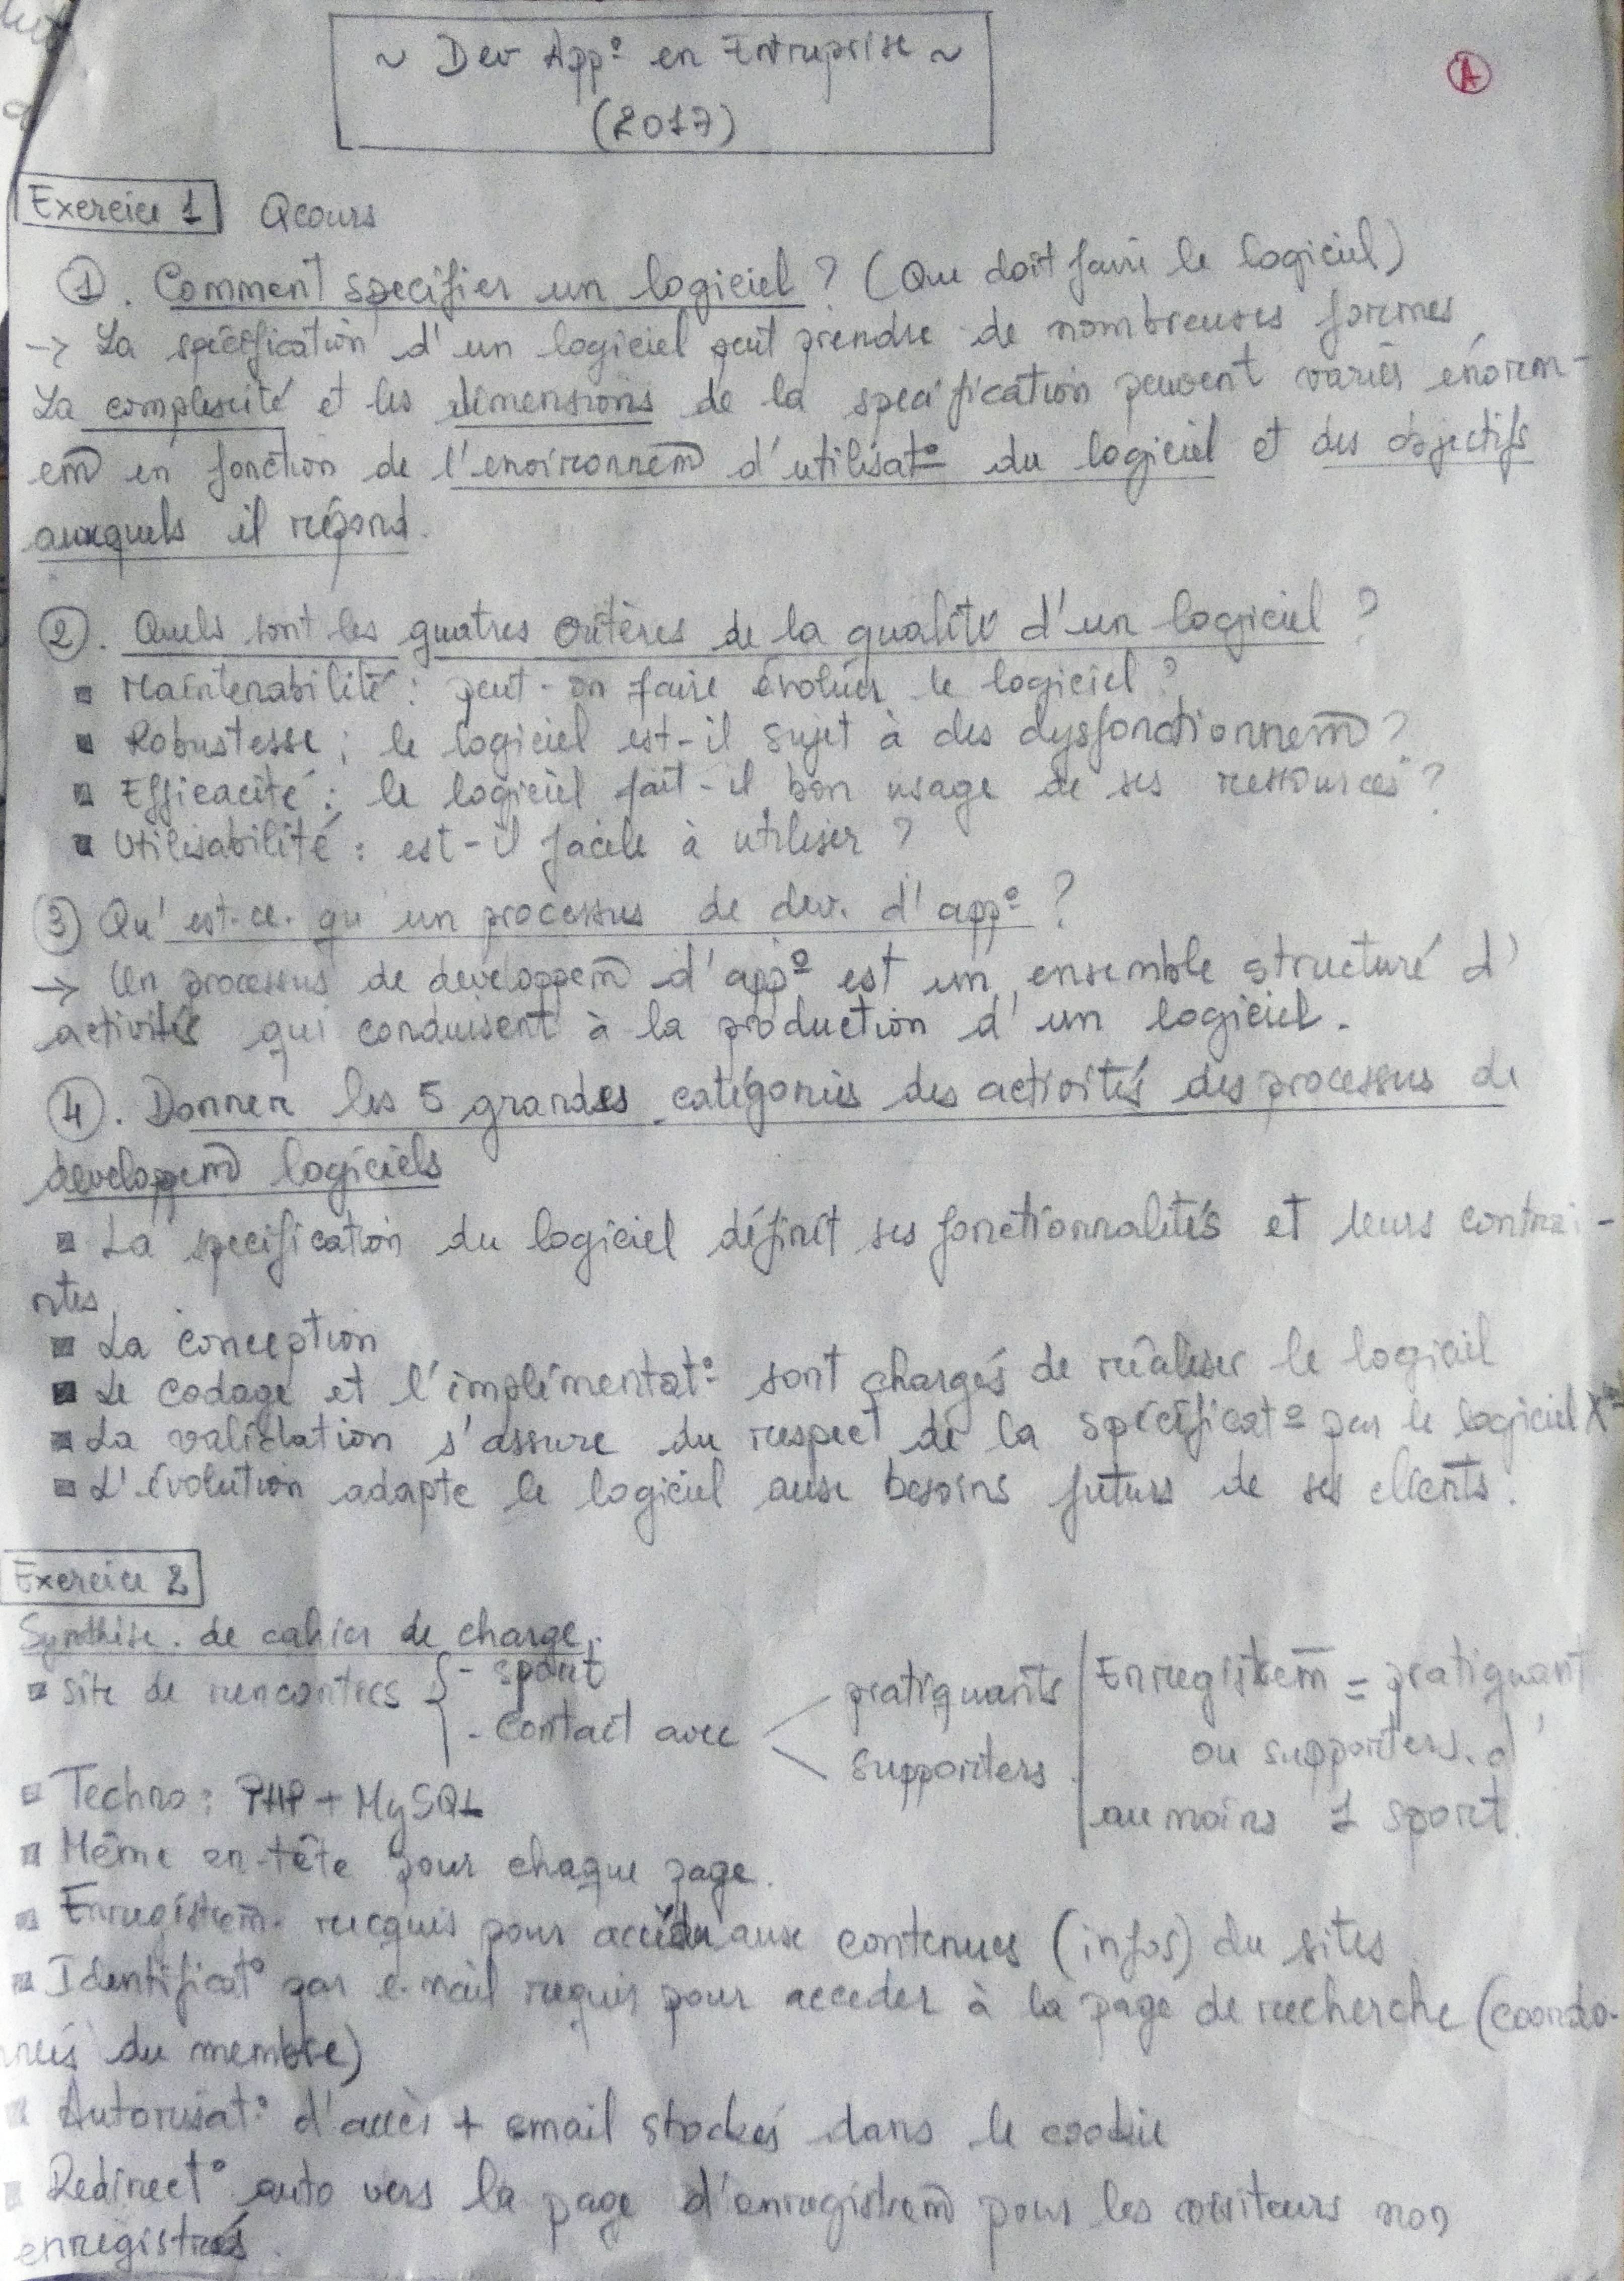 ~ Dev App° en Entreprise ~
(2017)
A
Exercice 1 Qcours
①. Comment specifier un logiciel ? (Que doit faire le logiciel)
→ La spécification d'un logiciel peut prendre de nombreuses formes
La complexité et les dimensions de la specification peuvent variés énorm-
em̄ en fonction de l'environnem̄ d'utilisat° du logiciel et des objectifs
auxquels il répond.
②. Quels sont les quatres critères de la qualité d'un logiciel ?
▪ Maintenabilité : peut-on faire évoluer le logiciel ?
▪ Robustesse : le logiciel est-il sujet à des dysfonctionnem̄ ?
▪ Efficacité : le logiciel fait-il bon usage de ses ressources ?
▪ Utilisabilité : est-il facile à utiliser ?
③ Qu'est-ce-qu'un processus de dev. d'app° ?
→ Un processus de developpem̄ d'app° est un ensemble structuré d'
activités qui conduisent à la production d'un logiciel.
④. Donner les 5 grandes catégories des activités des processus de
developpem̄ logiciels
▪ La specification du logiciel définit ses fonctionnalités et leurs contrai-
ntes
▪ La conception
▪ Le codage et l'implémentat° sont chargés de réaliser le logiciel
▪ La validation s'assure du respect de la spécificat° par le logiciel
▪ L'évolution adapte le logiciel aux besoins futurs de ses clients.
Exercice 2
Synthèse de cahier de charge.
▪ Site de rencontres { - sport
- contact avec < pratiquants
supporters.
Enregistrem̄ = pratiquant
ou supporters d'
au moins 1 sport.
▪ Techno : PHP + MySQL
▪ Même en-tête pour chaque page.
▪ Enregistrem̄ recquis pour accéder aux contenues (infos) du sites
▪ Identificat° par e-mail requis pour acceder à la page de recherche (coordo-
nnés du membre)
▪ Autorisat° d'accès + email stockés dans le cookie
▪ Redirect° auto vers la page d'enregistrem̄ pour les visiteurs non
enregistrés.